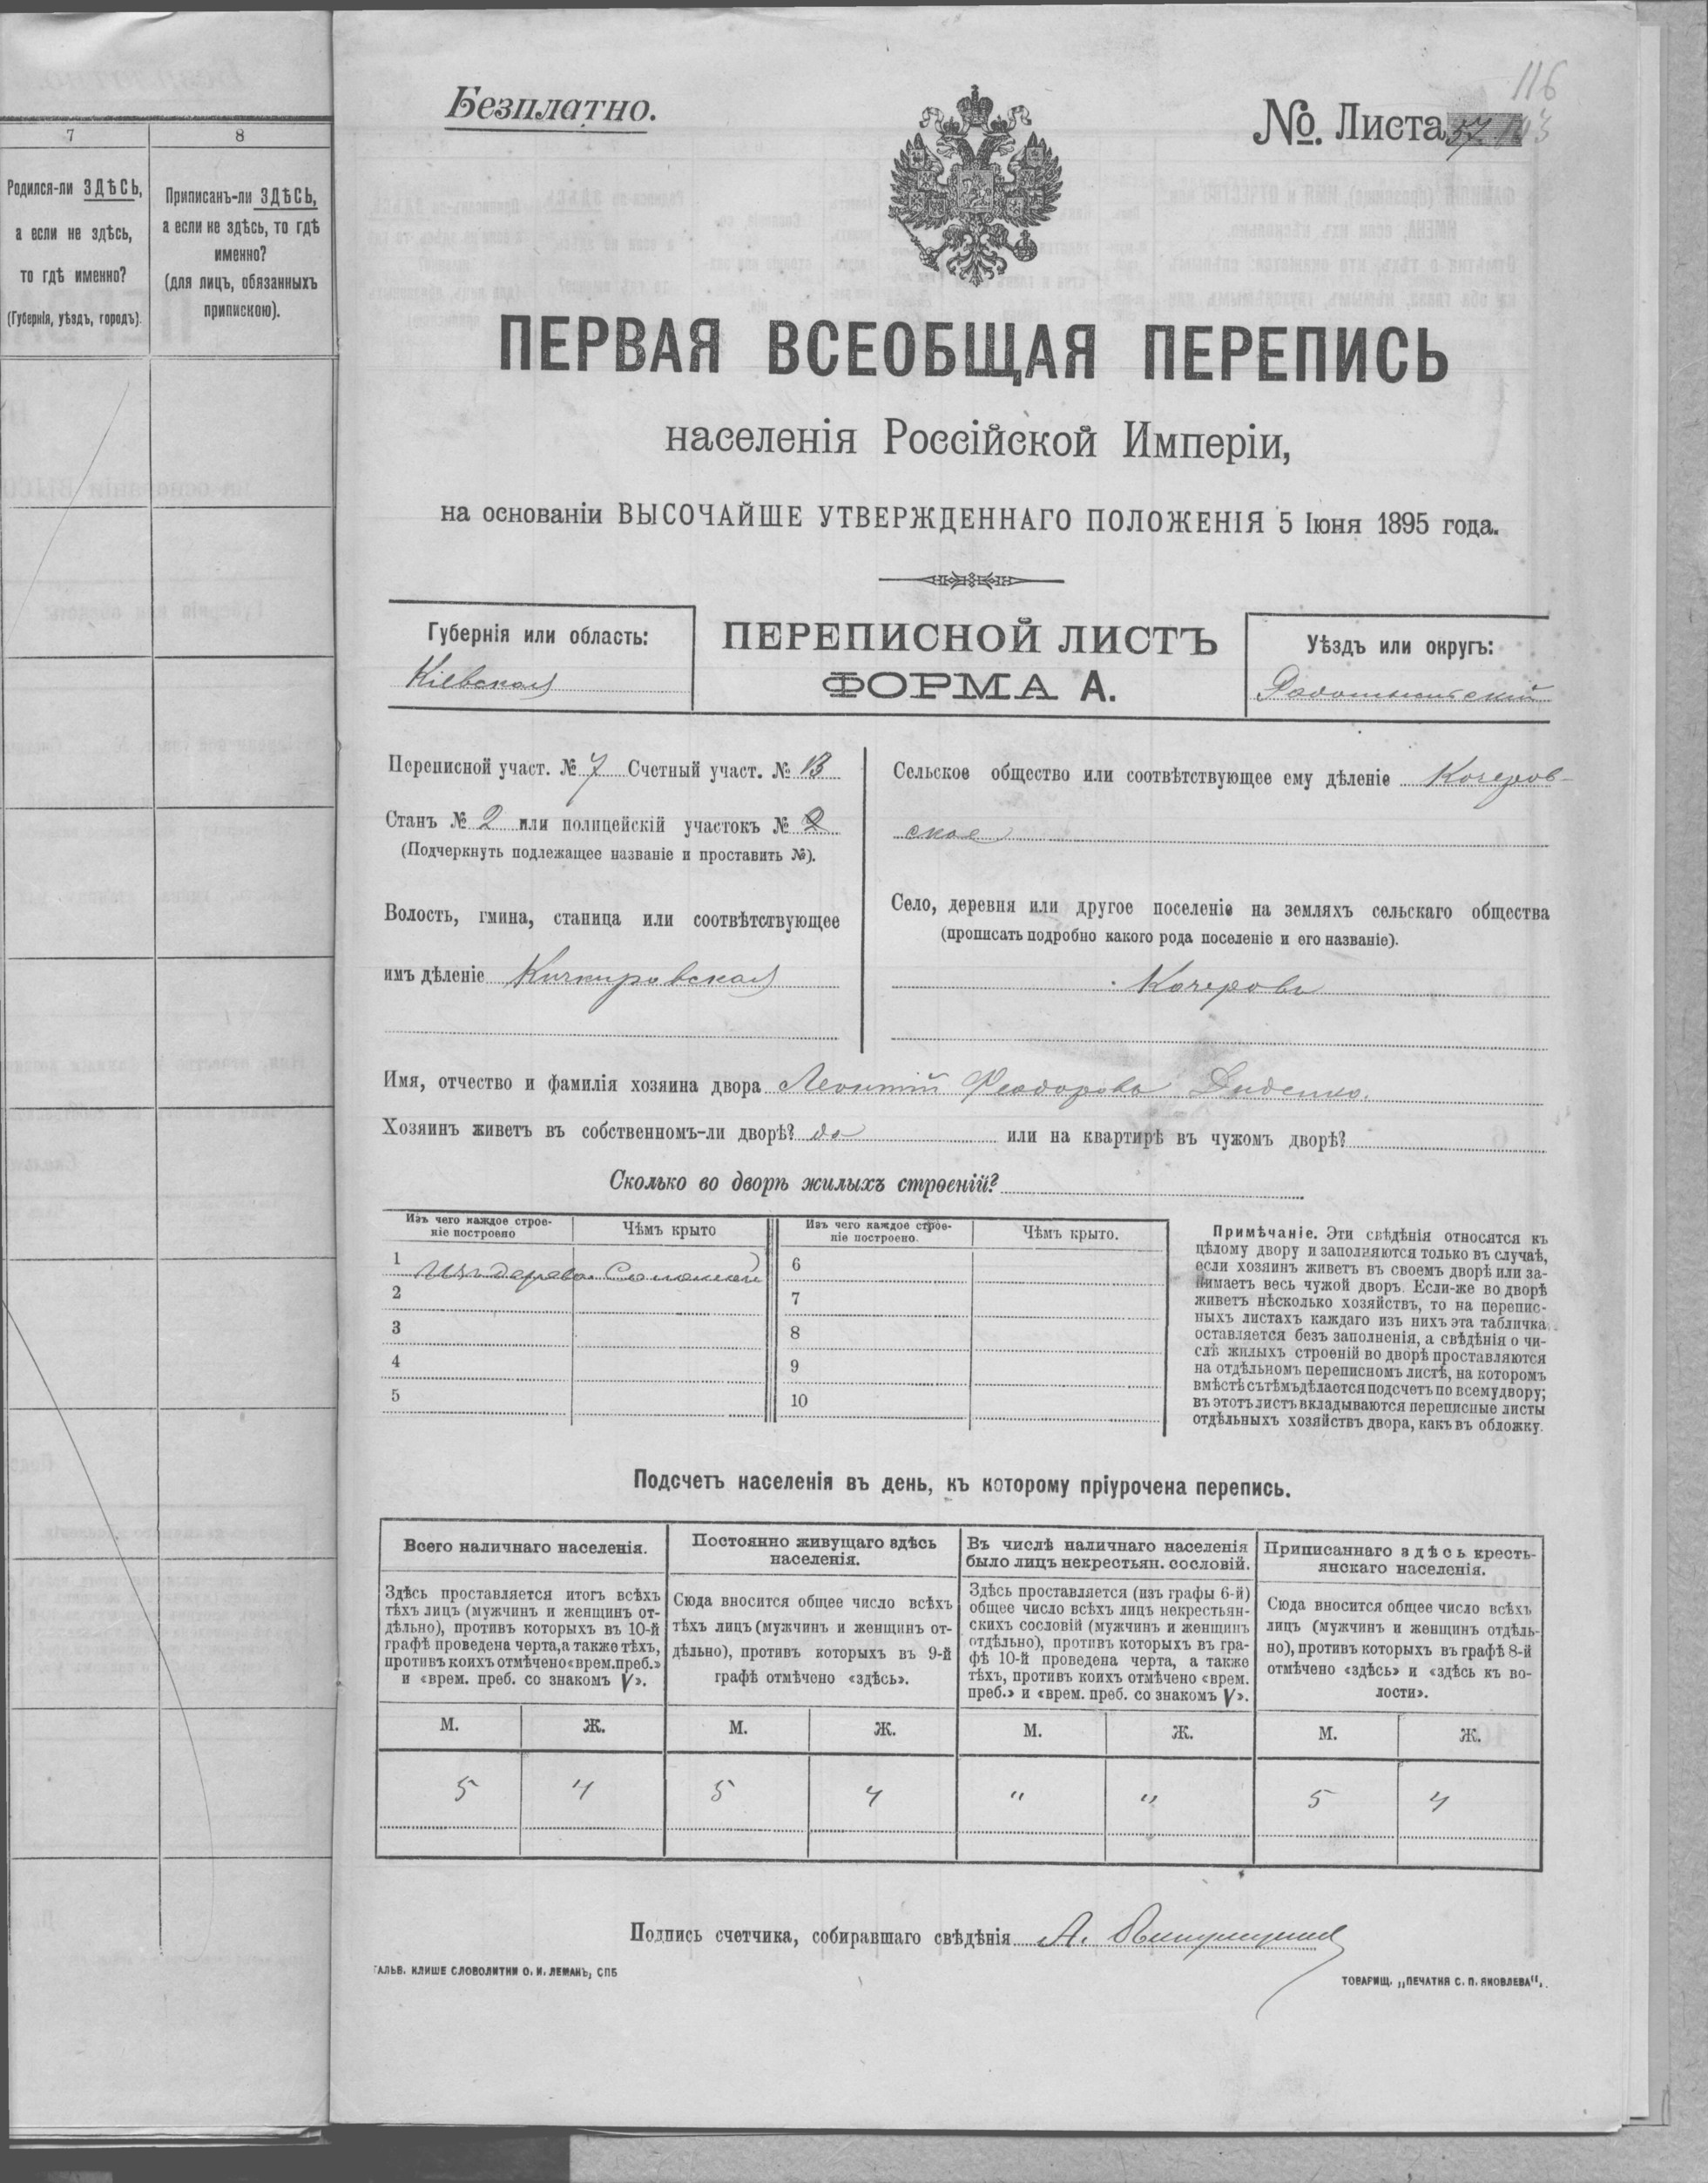 7
8
Родился-ли ЗДѢСЬ,
а если не здѣсь,
то гдѣ именно?
(Губернія, уѣздъ, городъ).
Приписанъ-ли ЗДѢСЬ,
а если не здѣсь, то гдѣ
именно?
(для лицъ, обязанныхъ
припискою).
116
Безплатно.
№. Листа 57
ПЕРВАЯ ВСЕОБЩАЯ ПЕРЕПИСЬ
населенія Россійской Имперіи,
на основаніи ВЫСОЧАЙШЕ УТВЕРЖДЕННАГО ПОЛОЖЕНІЯ 5 Іюня 1895 года.
Губернія или область:
Кіевская
ПЕРЕПИСНОЙ ЛИСТЪ
ФОРМА А.
Уѣздъ или округъ:
Радомысльскій
Переписной участ. № 7 Счетный участ. № 13
Станъ № 2 или полицейскій участокъ № 2
(Подчеркнуть подлежащее названіе и проставить №).
Волость, гмина, станица или соотвѣтствующее
имъ дѣленіе Кичкировская
Сельское общество или соотвѣтствующее ему дѣленіе Кочеров-
ское
Село, деревня или другое поселеніе на земляхъ сельскаго общества
(прописать подробно какого рода поселеніе и его названіе).
Кочеровъ
Имя, отчество и фамилія хозяина двора Леонтій Феодоровъ Диденко.
Хозяинъ живетъ въ собственномъ-ли дворѣ? да или на квартирѣ въ чужомъ дворѣ?
Сколько во дворѣ жилыхъ строеній?
Изъ чего каждое строе-
ніе построено
Чѣмъ крыто
Изъ чего каждое строе-
ніе построено.
Чѣмъ крыто.
1 Изъ дерева Соломой
2
3
4
5
6
7
8
9
10
Примѣчаніе. Эти свѣдѣнія относятся къ
цѣлому двору и заполняются только въ случаѣ,
если хозяинъ живетъ въ своемъ дворѣ или за-
нимаетъ весь чужой дворъ. Если-же во дворѣ
живетъ нѣсколько хозяйствъ, то на перепис-
ныхъ листахъ каждаго изъ нихъ эта табличка
оставляется безъ заполненія, а свѣдѣнія о чи-
слѣ жилыхъ строеній во дворѣ проставляются
на отдѣльномъ переписномъ листѣ, на которомъ
вмѣстѣ съ тѣмъ дѣлается подсчетъ по всему двору;
въ этотъ листъ вкладываются переписные листы
отдѣльныхъ хозяйствъ двора, какъ въ обложку.
Подсчетъ населенія въ день, къ которому пріурочена перепись.
Всего наличнаго населенія.
Здѣсь проставляется итогъ всѣхъ
тѣхъ лицъ (мужчинъ и женщинъ от-
дѣльно), противъ которыхъ въ 10-й
графѣ проведена черта, а также тѣхъ,
противъ коихъ отмѣчено «врем. преб.»
и «врем. преб. со знакомъ V».
Постоянно живущаго здѣсь
населенія.
Сюда вносится общее число всѣхъ
тѣхъ лицъ (мужчинъ и женщинъ от-
дѣльно), противъ которыхъ въ 9-й
графѣ отмѣчено «здѣсь».
Въ числѣ наличнаго населенія
было лицъ некрестьян. сословій.
Здѣсь проставляется (изъ графы 6-й)
общее число всѣхъ лицъ некрестьян-
скихъ сословій (мужчинъ и женщинъ
отдѣльно), противъ которыхъ въ гра-
фѣ 10-й проведена черта, а также
тѣхъ, противъ коихъ отмѣчено «врем.
преб.» и «врем. преб. со знакомъ V».
Приписаннаго здѣсь кресть-
янскаго населенія.
Сюда вносится общее число всѣхъ
лицъ (мужчинъ и женщинъ отдѣль-
но), противъ которыхъ въ графѣ 8-й
отмѣчено «здѣсь» и «здѣсь къ во-
лости».
М. Ж. М. Ж. М. Ж. М. Ж.
5 4 5 4 " " 5 4
Подпись счетчика, собиравшаго свѣдѣнія А.
ГАЛЬВ. КЛИШЕ СЛОВОЛИТНИ О. И. ЛЕМАНЪ, СПБ
ТОВАРИЩ. „ПЕЧАТНЯ С. П. ЯКОВЛЕВА".